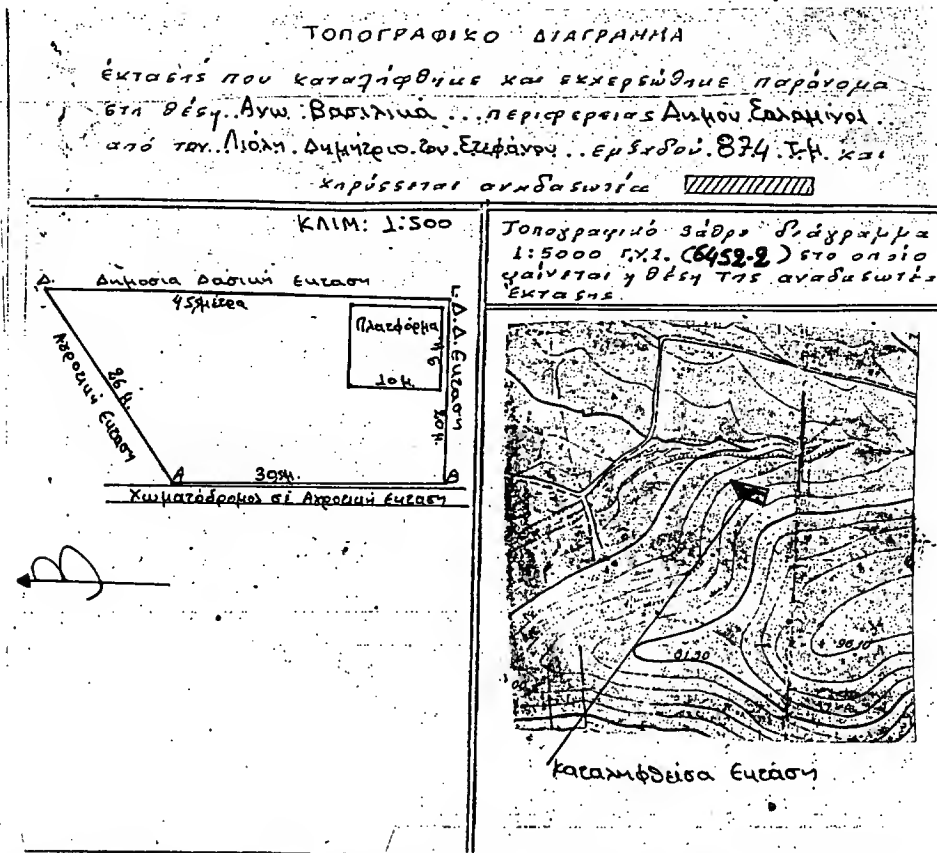 ΤΟΠΟΓΡΑΦΙΚΟ ΔΙΑΓΡΑΜΜΑ
έκτασης που καταλήφθηκε και εκχερσώθηκε παράνομα
στη θέση..Ανω.Βασιλικα...περιφερειας Δήμου.Σαλαμίνος..
από τον..Λιόλη.Δημήτριο.του.Στεφάνου..εμβαδού.874.Τ.Μ. και
κηρύσσεται αναδασωτέα
ΚΛΙΜ: 1:500
Δ
Δημοσια Δασικη Εκταση
Γ
45 μέτρα
Πλατφόρμα
10 μ.
Δ.Δ. Εκταση
20 μ
Αγροτική Εκταση
26 μ.
Α
39 μ.
Β
Χωματόδρομος σέ Αγροτική έκταση
Β
Τοπογραφικό βάθρο διάγραμμα
1:5000 Γ.Υ.Σ. (6452-2) στο οποίο
φαίνεται η θέση της αναδασωτέας
Έκτασης
61.30
96.10
Καταληφθείσα Εκτάση